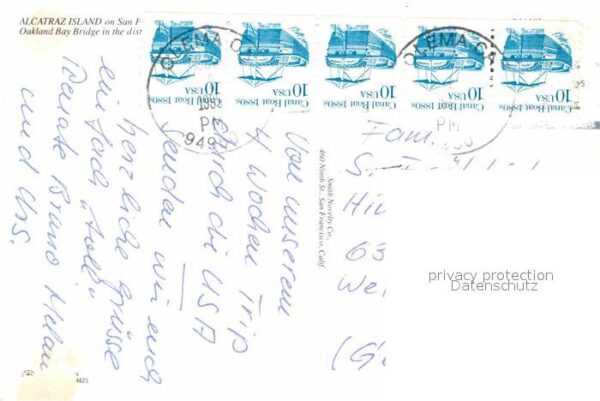 ALCATRAZ ISLAND on San F
Oakland Bay Bridge in the dist
Von unserem
4 Wochen Trip
durch die USA
senden wir euch
herzliche Grüsse
einfach "toll"
Renate Bruno
und Urs.
Smith Novelty Co.
460 Ninth St., San Francisco, Calif.
Canal Boat 1880s
10 USA
Canal Boat 1880s
10 USA
Canal Boat 1880s
10 USA
Canal Boat 1880s
10 USA
Canal Boat 1880s
10 USA
OLEMA C
PM
949
OLEMA CA
PM
Fam.
S
Hi
63
We
(G
privacy protection
Datenschutz
4623